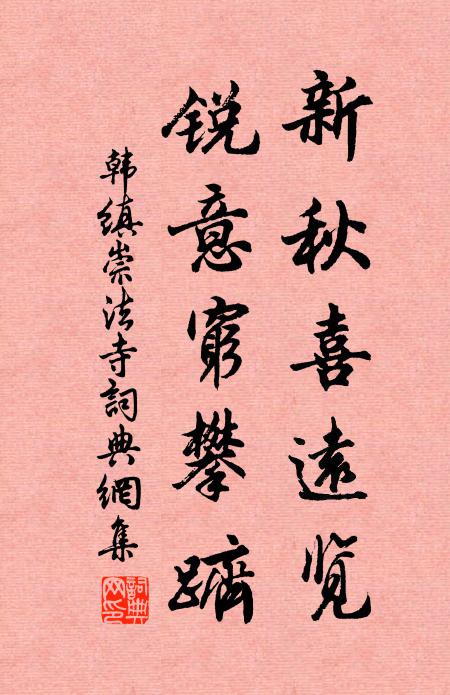 新秋喜遠览
锐意窮攀躋
韩缜崇法寺詞典網集
詞典网印